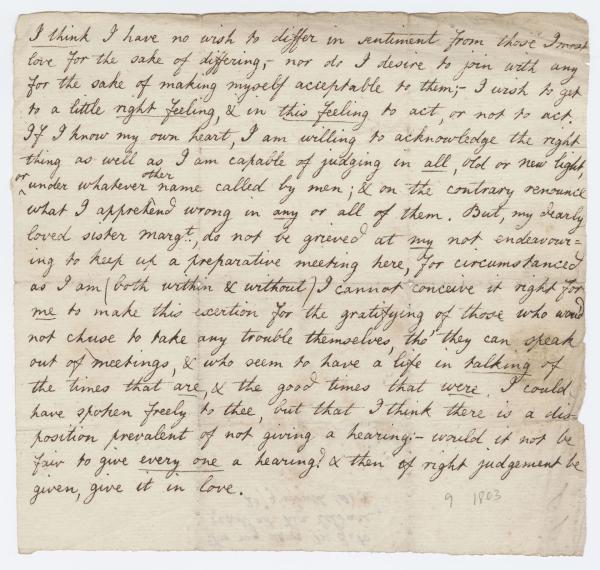 I think I have no wish to differ in sentiment from those I most
love for the sake of differing,- nor do I desire to join with any
for the sake of making myself acceptable to them;- I wish to get
to a little right feeling, & in this feeling to act, or not to act.
If I know my own hart, I am willing to acknowledge the right
thing as well as I am capable of judging in all, old or new light,
or under whatever other name called by men; & on the contrary renounce
what I apprehend wrong in any or all of them. But, my dearly
loved sister Margt. do not be grieved at my not endeavour=
ing to keep up a preparative meeting here, for circumstanced
as I am (both within & without) I cannot conceive it right for
me to make this exertion for the gratifying of those who would
not chuse to take any trouble themselves, tho' they can speak
out of meetings, & who seem to have a life in talking of
the times that are, & the good times that were. I could
have spoken freely to thee, but that I think there is a dis-
position prevalent of not giving a hearing:- would it not be
fair to give every one a hearing? & then if right judgement be
given, give it in love.
9 1803